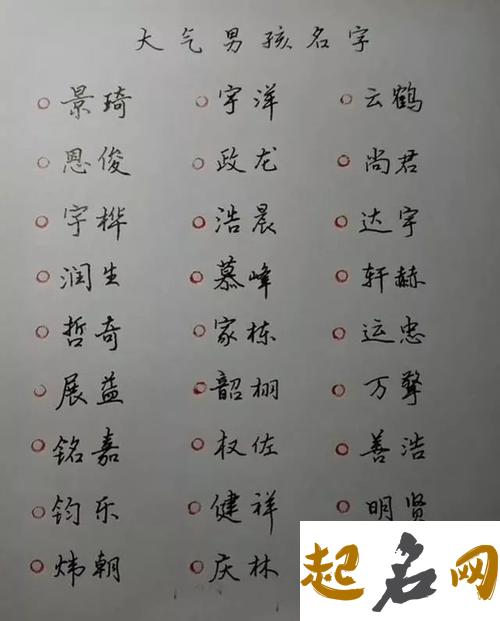 大气男孩名字
景琦 宇洋 云鹤
恩俊 政龙 尚君
宇桦 浩晨 达宇
润生 慕峰 轩赫
哲奇 家栋 运忠
展益 韶栩 万聱
铭嘉 权佐 善浩
钧乐 健祥 明贤
炜朝 庆林
起名网